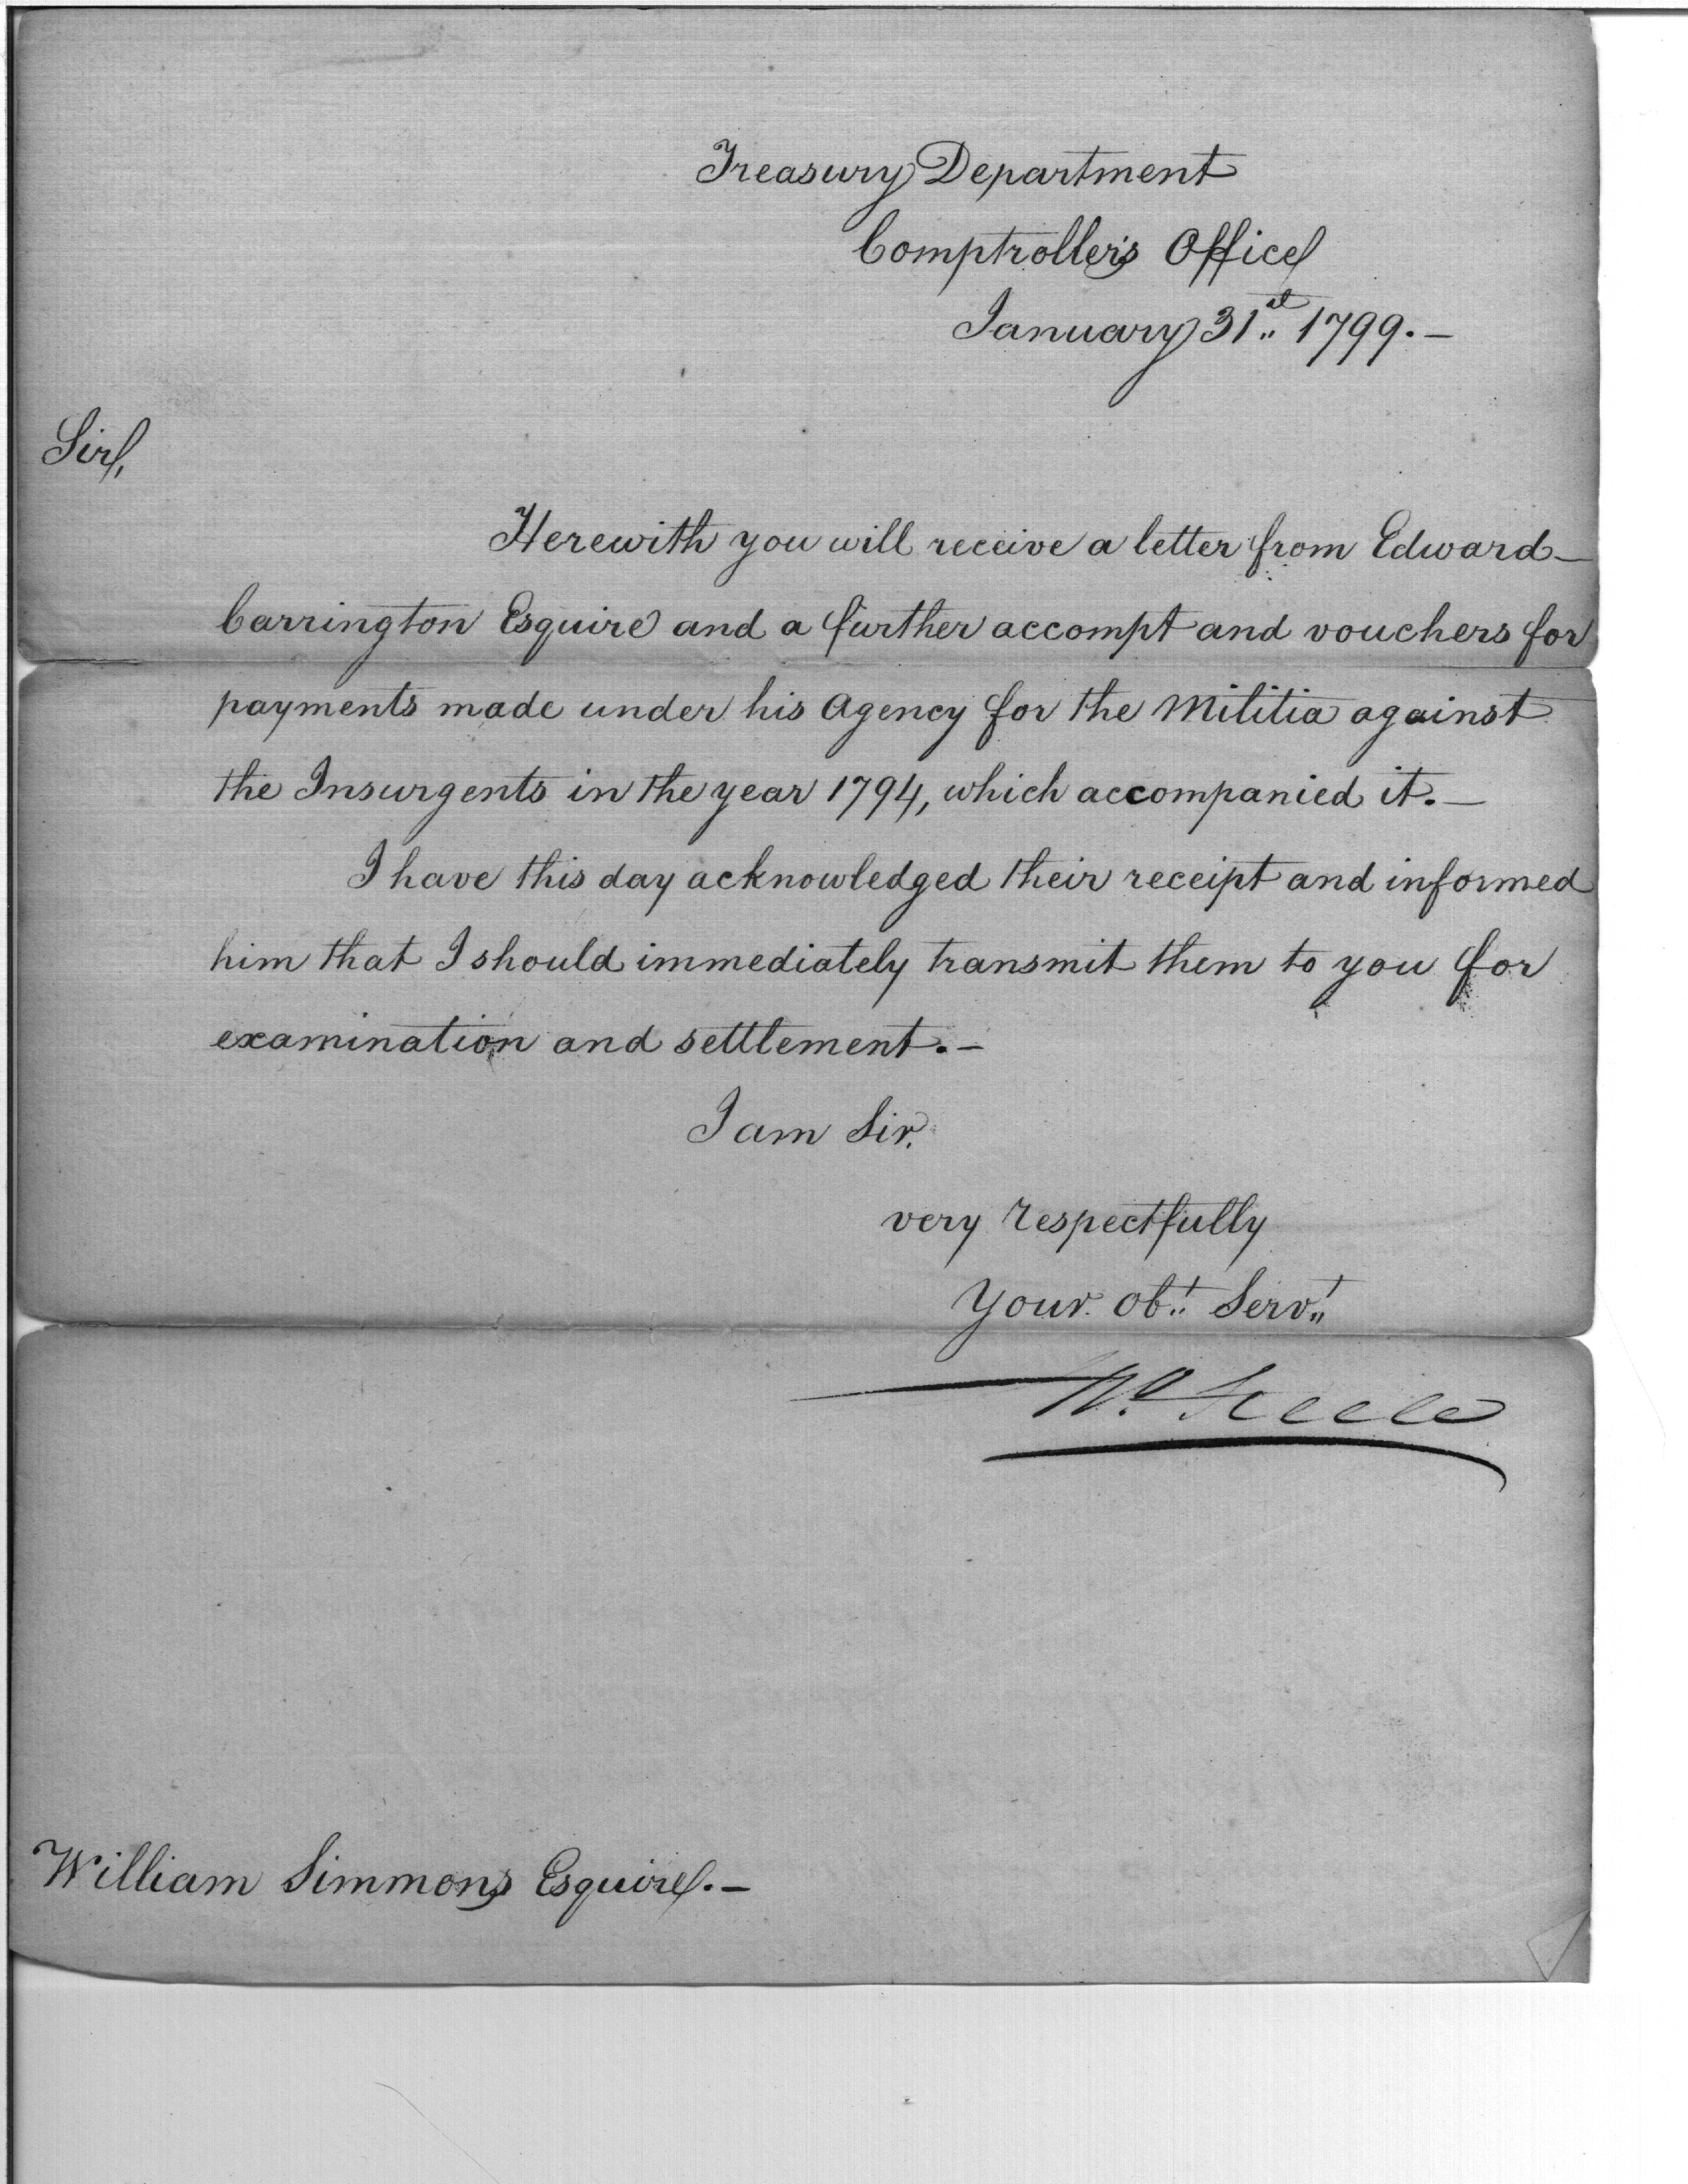 Treasury Department
Comptroller's Office
January 31st 1799.—
Sir,
Herewith you will receive a letter from Edward—
Carrington Esquire and a further accompt and vouchers for
payments made under his Agency for the Militia against
the Insurgents in the year 1794, which accompanied it.—
I have this day acknowledged their receipt and informed
him that I should immediately transmit them to you for
examination and settlement.—
I am Sir.
very respectfully
Your Obt Servt
Steele
William Simmons Esquire.—